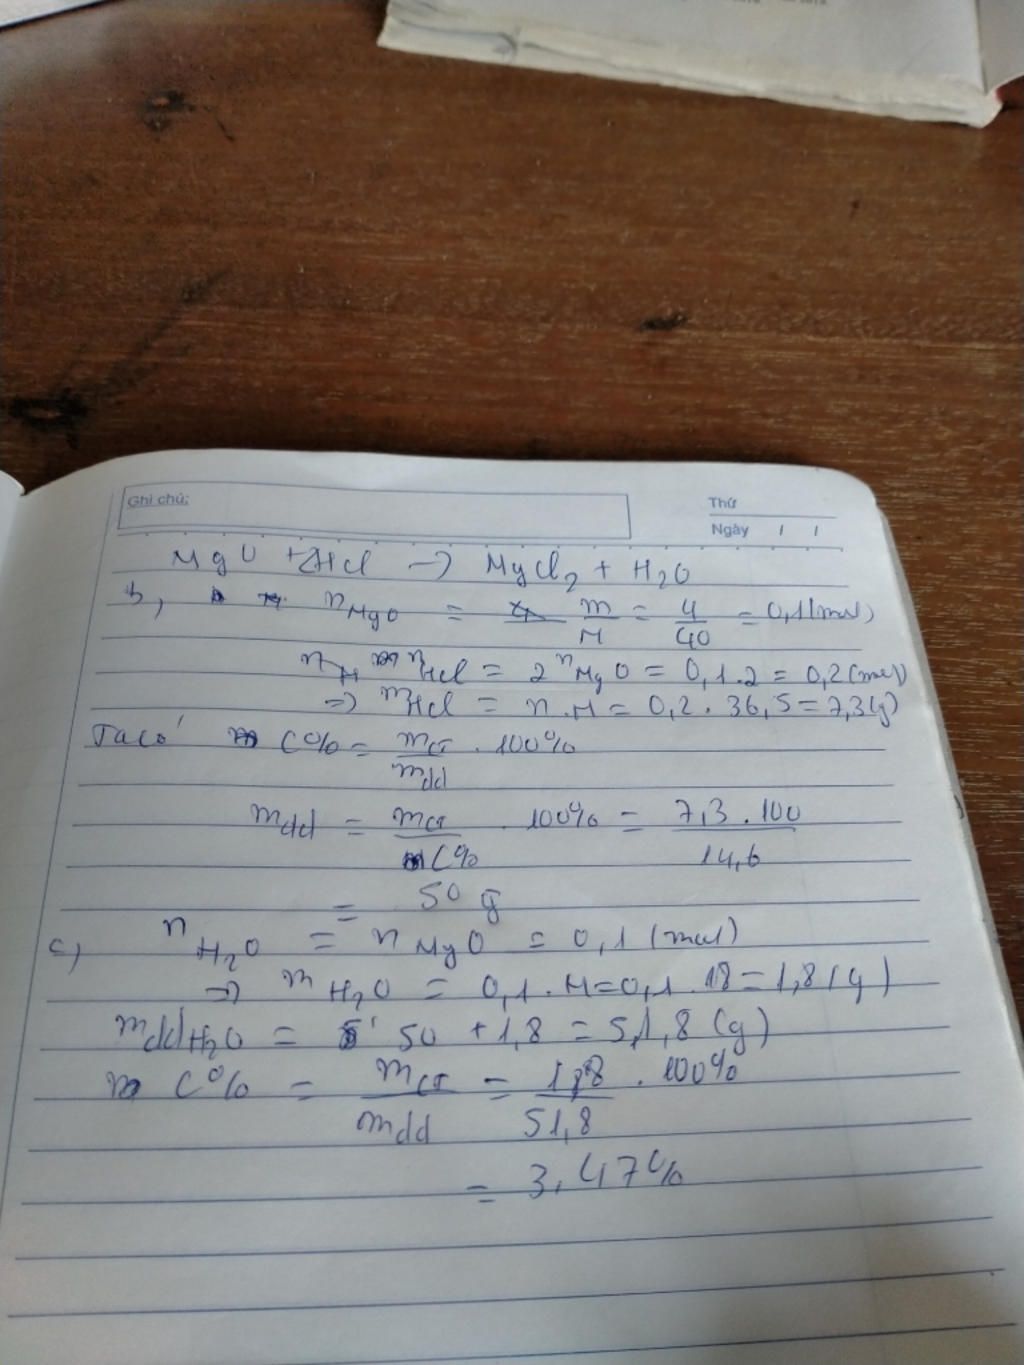 Ghi chú:
Thứ
Ngày / /
MgO + 2HCl → MgCl2 + H2O
b, nMgO = m/M = 4/40 = 0,1 (mol)
nHCl = 2 nMgO = 0,1.2 = 0,2 (mol)
=> mHCl = n.M = 0,2.36,5 = 7,3 (g)
Ta có C% = mct/mdd . 100%
mdd = mct/C% . 100% = 7,3.100/14,6
= 50 g
c) nH2O = nMgO = 0,1 (mol)
=> mH2O = 0,1.M = 0,1.18 = 1,8 (g)
mddH2O = 50 + 1,8 = 51,8 (g)
C% = mct/mdd = 1,8/51,8 . 100%
= 3,47%